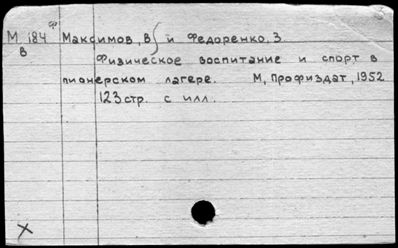 ф
М 184 Максимов, В) и Федоренко, З
в
Физическое воспитание и спорт в
пионерском лагере. М, Профиздат, 1952
123 стр. с илл.
X